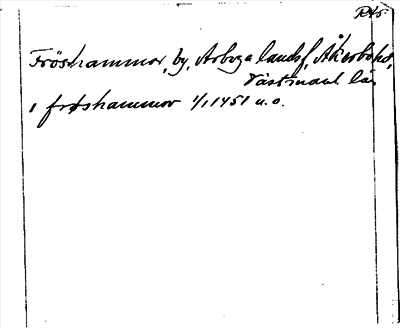 RA5.
Fröshammar, by, Arboga landsf, Åkerbohd,
Västmanl län
i frøshammor 1/1 1451 u.o.